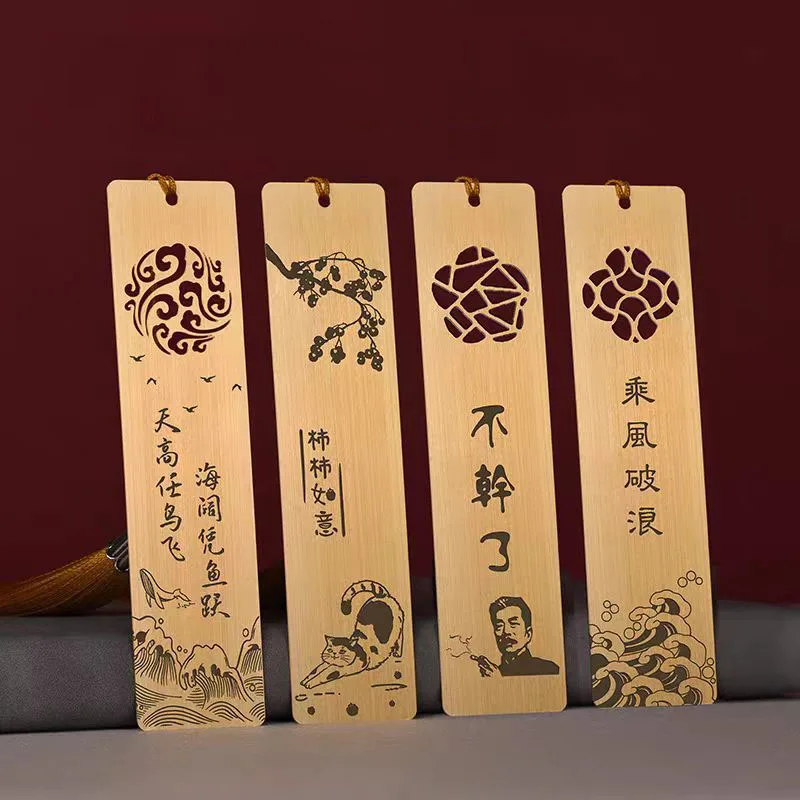 海阔凭鱼跃
天高任鸟飞
柿柿如意
不幹了
乘風破浪